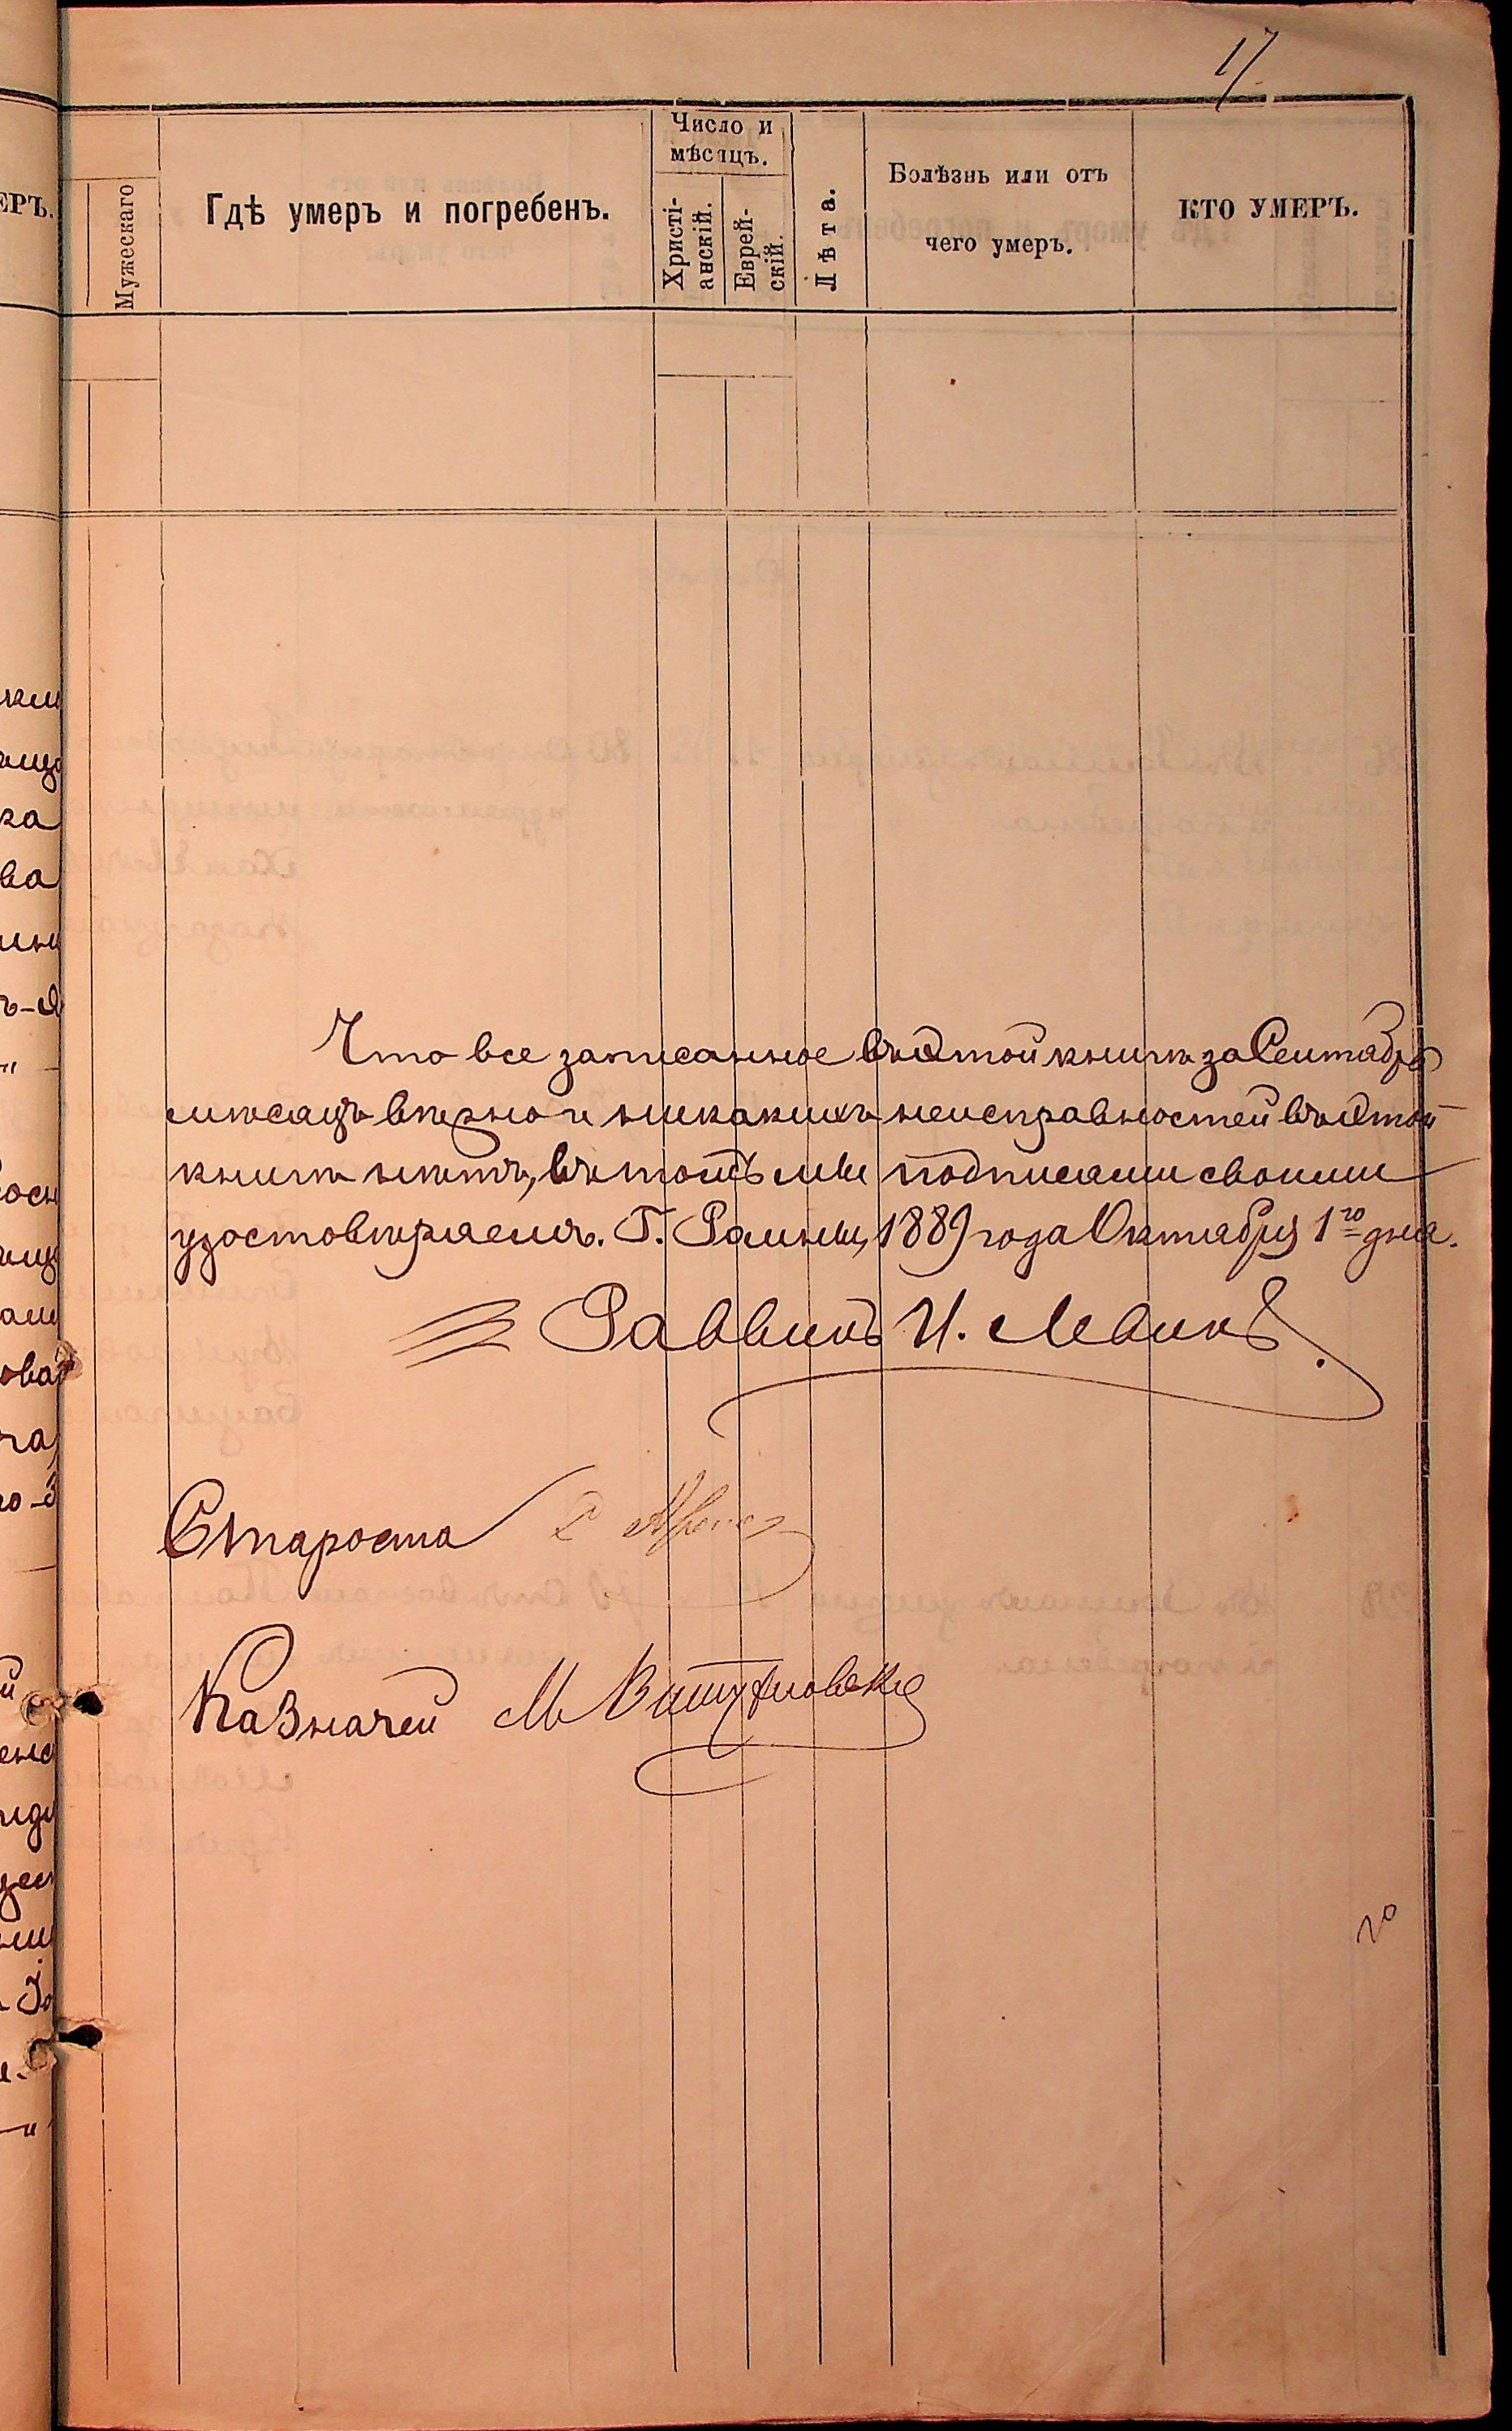 17
Мужескаго
Гдѣ умеръ и погребенъ.
Число и
мѣсяцъ.
Христі-
анскій.
Еврей-
скій.
Лѣта.
Болѣзнь или отъ
чего умеръ.
КТО УМЕРЪ.
Что все записанное въ этой книгѣ за Сентябрь
мѣсяцъ вѣрно и никакихъ неисправностей въ этой
книгѣ нѣтъ, въ томъ мы подписами своими
удостовѣряемъ. Г. Ромны, 1889 года Октября 1го дня.
Раввинъ И. Левинъ.
Староста
Казначей М
20